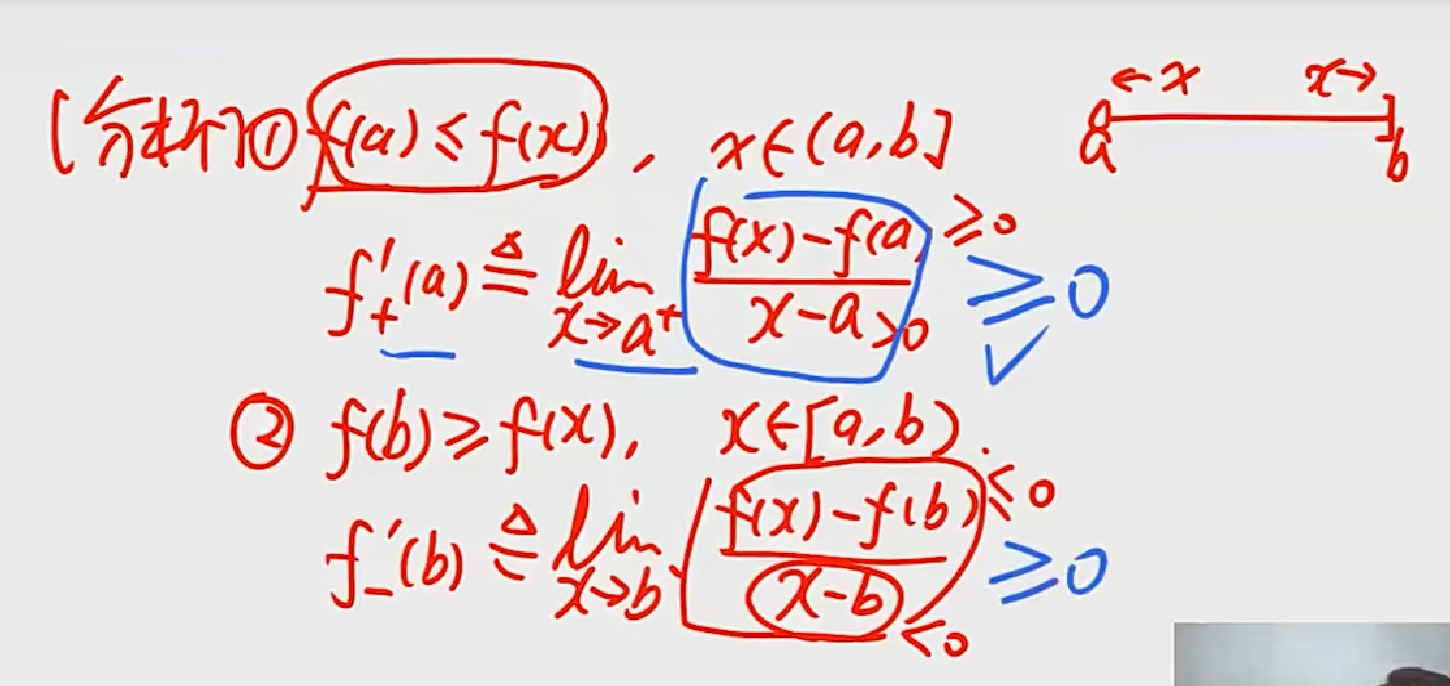 [分析] ① f(a) ≤ f(x), x∈(a,b]
←x x→
a b
f₊′(a) ≜ lim x→a⁺ (f(x)-f(a) ≥0)/(x-a >0) ≥0 ✓
② f(b) ≥ f(x), x∈[a,b).
f₋′(b) ≜ lim x→b⁻ (f(x)-f(b) ≤0)/(x-b <0) ≥0